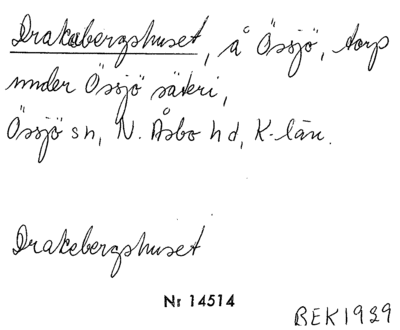 Drakabergshuset, å Össjö, torp
under Össjö säteri,
Össjö sn, N. Åsbo hd, K-län.
Drakebergshuset
Nr 14514
BEK1939